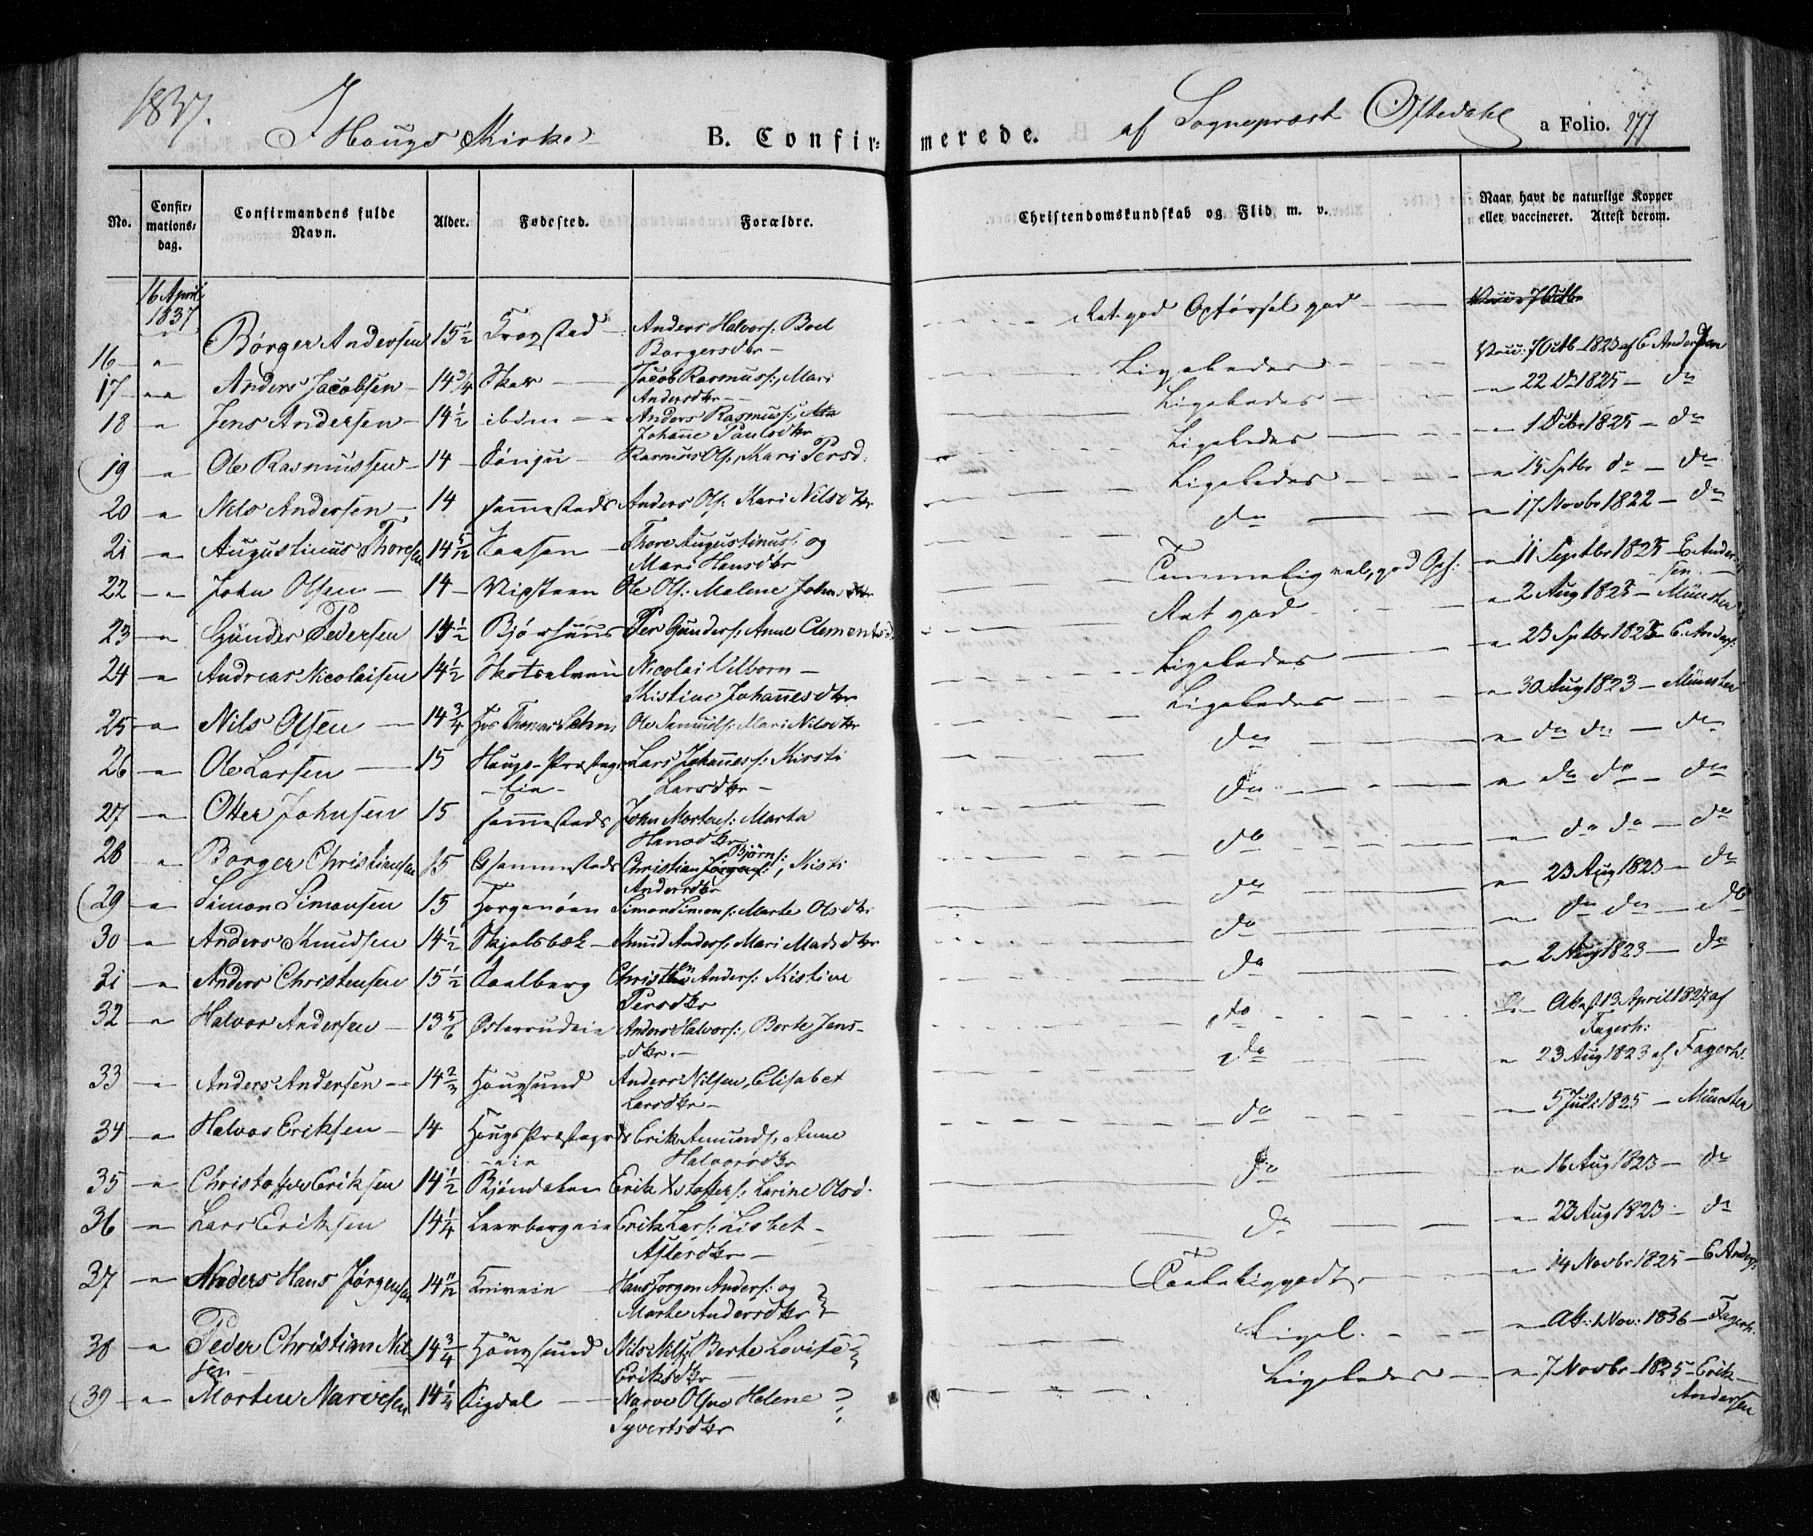 1837.
I Hougs Kirke
B. Confirmerede.
af Sognepræst Oftedahl
a Folio. 277
No.
Confirmationsdag.
Confirmandens fulde Navn.
Alder.
Fødested.
Forældre.
Christendomskundskab og Flid m. v.
Naar havt de naturlige Kopper eller vaccineret. Attest derom.
16 April 1837
16 " Børger Andersen 15½ Anders Halvors: Boel Borgersdtr Met god Opførsel god 7 Octb 1823 af E. Andersen
17 " Anders Jacobsen 14¾ Jacob Rasmuss:, Mari Andersdtr Ligeledes " 22 1825 do
18 " Jens Andersen 14½ ibdm Anders Rasmuss: Johanne Paulsdtr Ligeledes " 1 1825 do
19 " Ole Rasmussen 14 Rasmus Ols:, Mari Persd: Ligeledes " 15 Sptbr do do
20 " Nils Andersen 14 sammesteds Anders Ols: Kari Nilsdtr Ligeledes " 17 Novbr 1822 do
21 " Augustinus Thoresen 14 5/12 Thore Augustinus: og Mari Hansdtr do " 11 Septbr 1825 E. Andersen
22 " John Olsen 14 Ole Ols: Malene Johnsdtr Temmelig vel, god Opf: " 2 Aug 1825 Münster
23 " Gunder Pedersen 14½ Per Gunders: Anne Clementsd Met god " 23 Sptbr 1825 E. Anders:
24 " Andreas Nicolaisen 14½ Nicolai Velborn Kistine Johannesdtr Ligeledes " 30 Aug 1823 Münster
25 " Nils Olsen 14¾ Ole Samuels: Mari Nilsdtr Ligeledes " do do do
26 " Ole Larsen 15 Hougs-Præstegr eie Lars Johanness: Kirsti Larsdtr do " do do do
27 " Otter Johnsen 15 sammesteds John Mortens: Marta Hansdtr do " do do do
28 " Borger Christiansen 15 sammesteds Christian Bjørns:, Kisti Andersdtr do " 23 Aug 1823 do
29 " Simon Simonsen 15 Horgenøen Simon Simons: Marte Olsdtr do " do do do
30 " Anders Knudsen 14½ Skjelsbæk Knud Anders: Mari Madsdtr do " 2 Aug 1823 do
31 " Anders Christensen 15½ Kaalberg Christen Anders: Kistine Persdtr do At. 13 April 1827 af Fagerh:
32 " Halvor Andersen 13 5/6 Østerudeie Anders Halvors:, Berte Jensdtr. do " 23 Aug 1823 af Fagerh.
33 " Anders Andersen 14⅔ Hougsund Anders Nilsen, Elisabet Larsdtr do " 5 Juli 1825 Münster
34 " Halvor Eriksen 14 Hougs Præstegrds eie Erik Amunds: Anne Halvorsdtr do " 16 Aug 1823 do
35 " Christoffer Eriksen 14½ Mjøndalen Erik Xstoffers: Karine Olsd. do " 23 Aug 1823 do
36 " Lars Eriksen 14¼ Leerbergeie Erik Lars: Lisbet Aslersdtr do " 14 Novbr 1825 E Anders:
37 " Anders Hans Jørgensen 14 11/12 Hans Jørgen Anders: og Marte Andersdtr Taaleliggodt
38 " Peder Christian Nilsen 14¾ Hougsund Nils Nils: Berte Lovise Eriksdtr Ligel. " At: 1 Nov: 1836 Fagerh.
39 " Morten Narvesen 14¼ Sigdal Narve Olsen Helene Syvertsdtr ? Ligeledes " 7 Novbr 1825 Erik Andersen